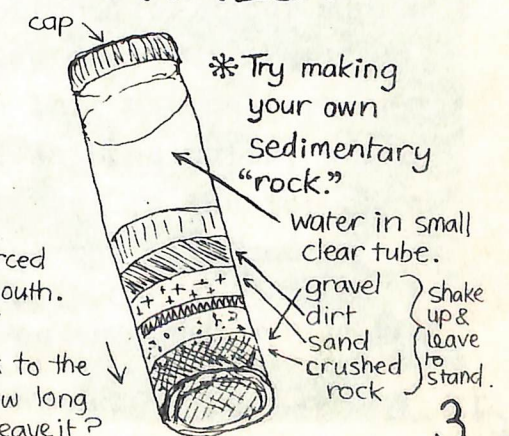 cap
* Try making
your own
sedimentary
"rock."
water in small
clear tube.
gravel
dirt
sand
crushed
rock
shake
up &
leave
to
stand.
outh.
to the
long
eave it?
3